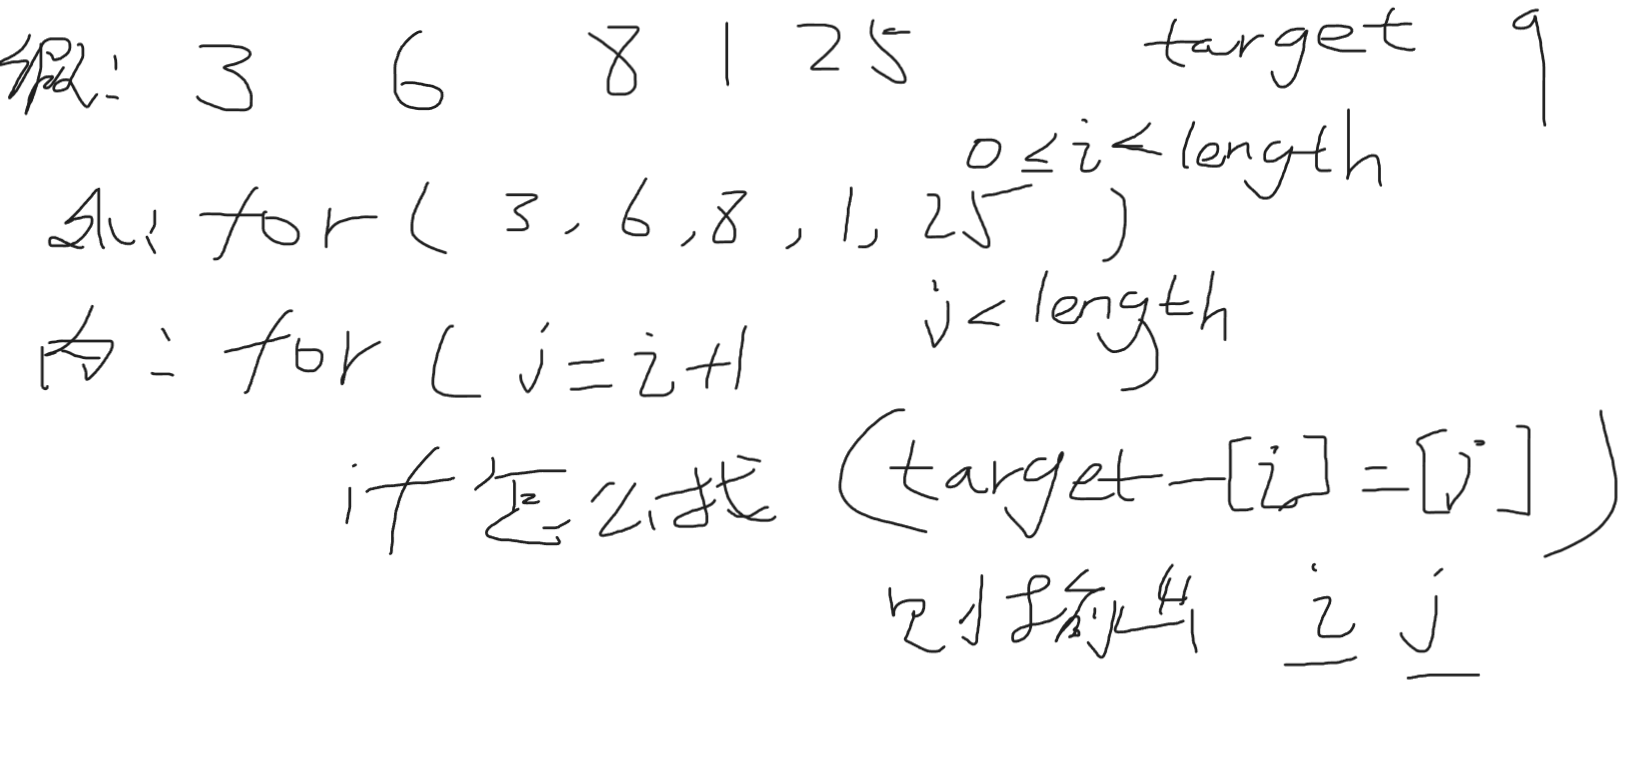 假: 3 6 8 1 25 target 9
0 ≤ i < length
外: for ( 3, 6, 8, 1, 25 )
j < length
内: for ( j = i + 1
if 怎么找 (target - [i] = [j])
则输出 i j